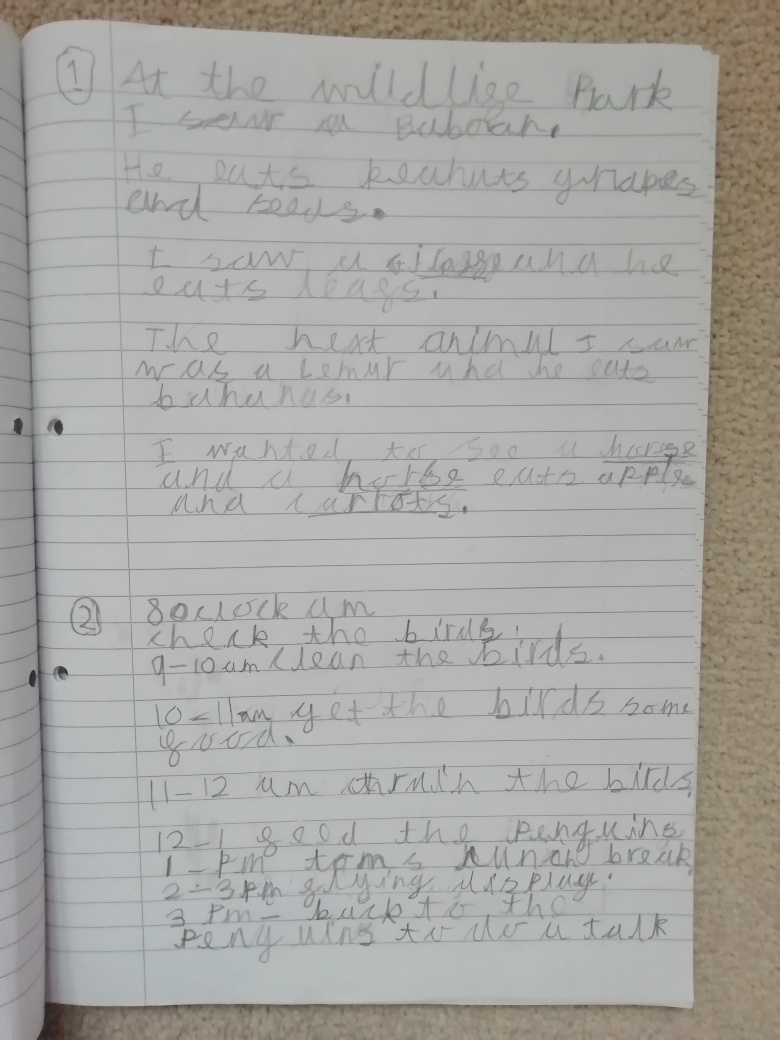 1 At the wildlife Park
I saw a Baboan.
He eats peanuts grapes
and seeds.
I saw a giraffe and he
eats leafs.
The next animal I saw
was a Lemur and he eats
bananas.
I wanted to see a horse
and a horse eats apples
and carrots.
2 8 oclock am
check the birds.
9-10 am Clean the birds.
10-11am get the birds some
food.
11-12 am thrain the birds
12-1 feed the penguins
1- Pm toms lunch break
2-3 pm flying display.
3 Pm- back to the
penguins to do a talk